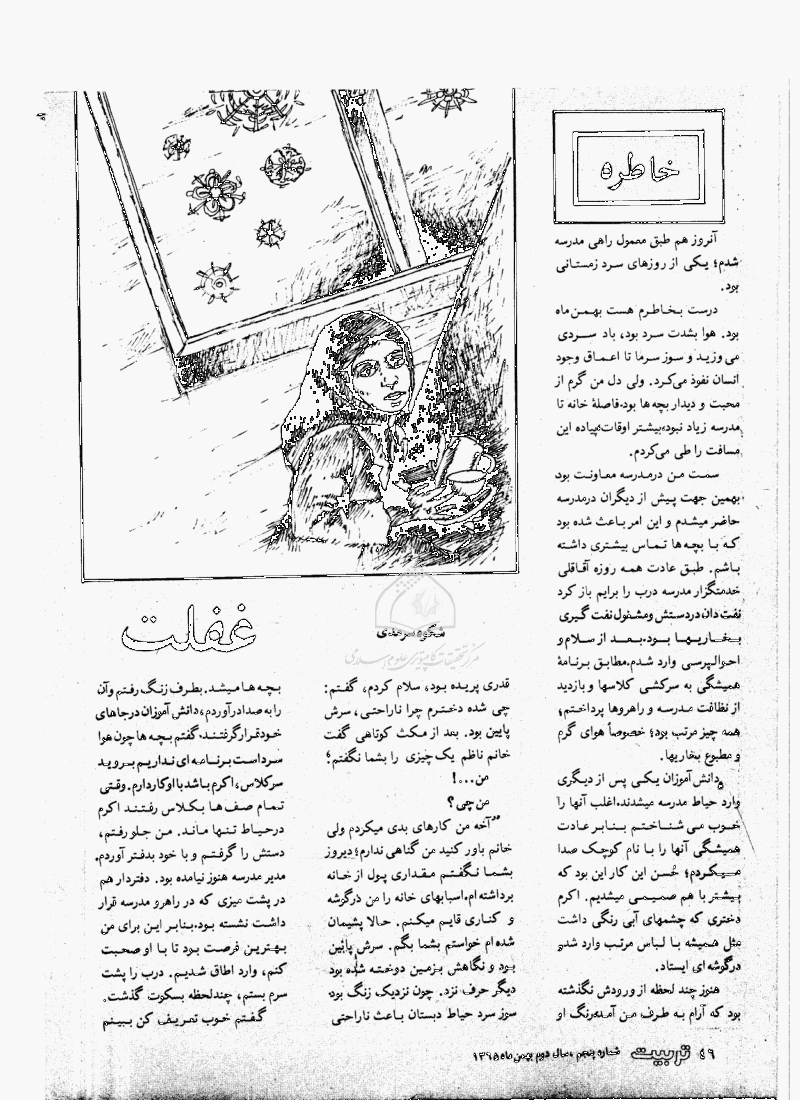 خاطره
آنروز هم طبق معمول راهی مدرسه
شدم؛ یکی از روزهای سرد زمستانی
بود.
درست بخاطرم هست بهمن‌ماه
بود. هوا بشدت سرد بود، باد سردی
می‌وزید و سوز سرما تا اعماق وجود
انسان نفوذ می‌کرد. ولی دل من گرم از
محبت و دیدار بچه‌ها بود.فاصلهٔ خانه تا
مدرسه زیاد نبود،بیشتر اوقات،پیاده این
مسافت را طی می‌کردم.
سمت من درمدرسه معاونت بود
بهمین جهت پیش از دیگران درمدرسه
حاضر میشدم و این امر باعث شده بود
که با بچه‌ها تماس بیشتری داشته
باشم. طبق عادت همه روزه آقاقلی
خدمتگزار مدرسه درب را برایم باز کرد
نفت‌دان دردستش ومشغول نفت گیری
بخاریها بود.بعد از سلام و
احوالپرسی وارد شدم.مطابق برنامهٔ
همیشگی به سرکشی کلاسها و بازدید
از نظافت مدرسه و راهروها پرداختم؛
همه چیز مرتب بود؛ خصوصاً هوای گرم
و مطبوع بخاریها.
دانش‌آموزان یکی پس از دیگری
وارد حیاط مدرسه میشدند.اغلب آنها را
خوب می‌شناختم بنابر عادت
همیشگی آنها را با نام کوچک صدا
میکردم؛ حُسن این کار این بود که
بیشتر با هم صمیمی میشدیم. اکرم
دختری که چشمهای آبی رنگی داشت
مثل همیشه با لباس مرتب وارد شد و
درگوشه‌ای ایستاد.
هنوز چند لحظه از ورودش نگذشته
بود که آرام به طرف من آمد،رنگ او
غفلت
شکوه سرمدی
مرکز تحقیقات کامپیوتری علوم اسلامی
قدری پریده بود، سلام کردم، گفتم:
چی شده دخترم چرا ناراحتی، سرش
پایین بود. بعد از مکث کوتاهی گفت
خانم ناظم یک‌چیزی را بشما نگفتم؛
من...!
من چی؟
"آخه من کارهای بدی میکردم ولی
خانم باور کنید من گناهی ندارم؛دیروز
بشما نگفتم مقداری پول از خانه
برداشته‌ام.اسبابهای خانه را من درگوشه
و کناری قایم میکنم. حالا پشیمان
شده‌ام خواستم بشما بگم. سرش پائین
بود و نگاهش بزمین دوخته شده بود
دیگر حرف نزد. چون نزدیک زنگ بود
سوز سرد حیاط دبستان باعث ناراحتی
بچه‌ها میشد.بطرف زنگ رفتم وآن
رابه صدادرآوردم،دانش‌آموزان درجاهای
خودقرارگرفتند.گفتم بچه‌ها چون هوا
سرداست برنامه‌ای نداریم بروید
سرکلاس،اکرم باشد بااوکاردارم.وقتی
تمام صف‌ها بکلاس رفتند اکرم
درحیاط تنها ماند. من جلو رفتم،
دستش را گرفتم و با خود بدفتر آوردم.
مدیر مدرسه هنوز نیامده بود. دفتردار هم
در پشت میزی که در راهرو مدرسه قرار
داشت نشسته بود.بنابر این برای من
بهترین فرصت بود تا با او صحبت
کنم، وارد اطاق شدیم. درب را پشت
سرم بستم، چندلحظه بسکوت گذشت.
گفتم خوب تعریف کن ببینم
۴۹ تربیت شماره پنجم،سال دوم بهمن‌ماه ۱۳۶۵